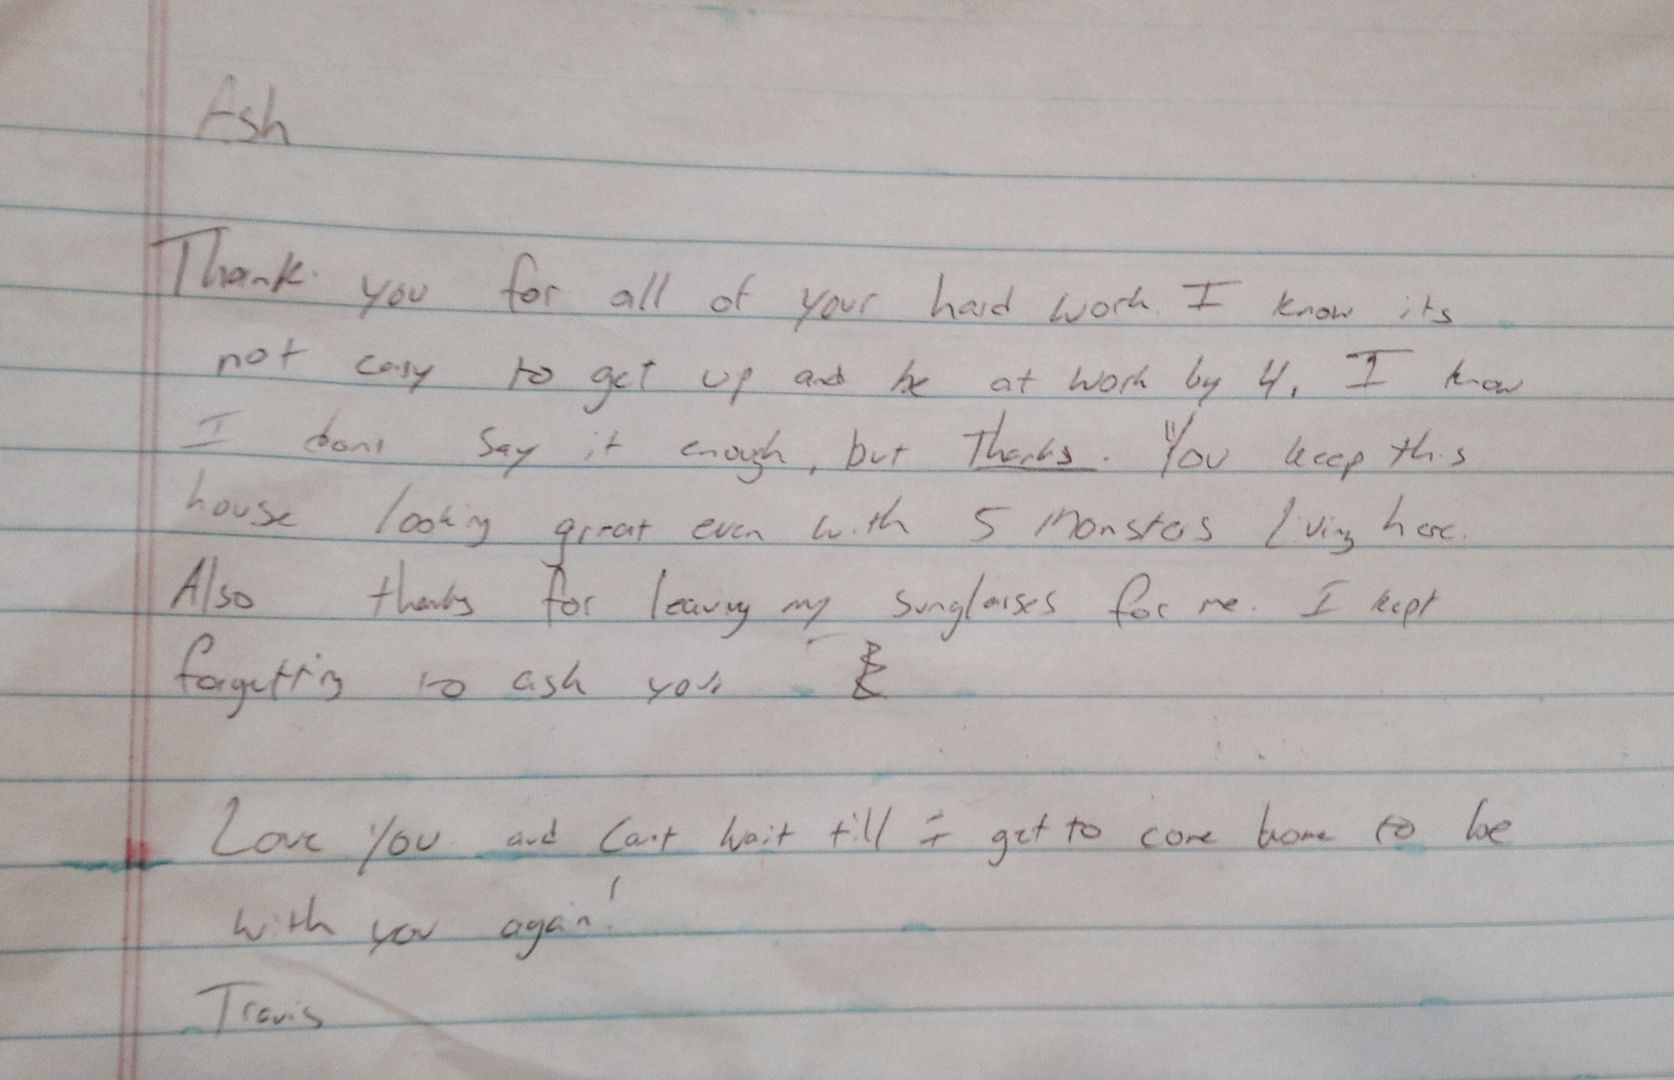 Ash
Thank you for all of your hard work. I know its
not easy to get up and be at work by 4. I know
I dont say it enough, but Thanks. You keep this
house looking great even with 5 monsters living here.
Also thanks for leaving my sunglasses for me. I kept
forgetting to ask you.
Love you and Cant wait till I get to come home to be
with you again!
Travis